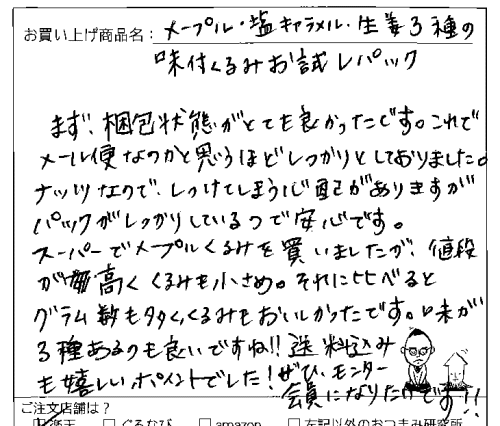 お買い上げ商品名：メープル・塩キャラメル・生姜3種の
味付くるみお試しパック
まず、梱包状態がとても良かったです。これで
メール便なのかと思うほどしっかりとしておりました。
ナッツなので、しっけてしまう心配がありますが
パックがしっかりしているので安心です。
スーパーでメープルくるみを買いましたが、値段
が高くくるみも小さめ。それに比べると
グラム数も多く、くるみもおいしかったです。味が
3種あるのも良いですね!!送料込み
も嬉しいポイントでした!ぜひ、モニター
会員になりたいです!!
ご注文店舗は？
楽天 □ ぐるなび □ amazon □ 左記以外のおつまみ研究所